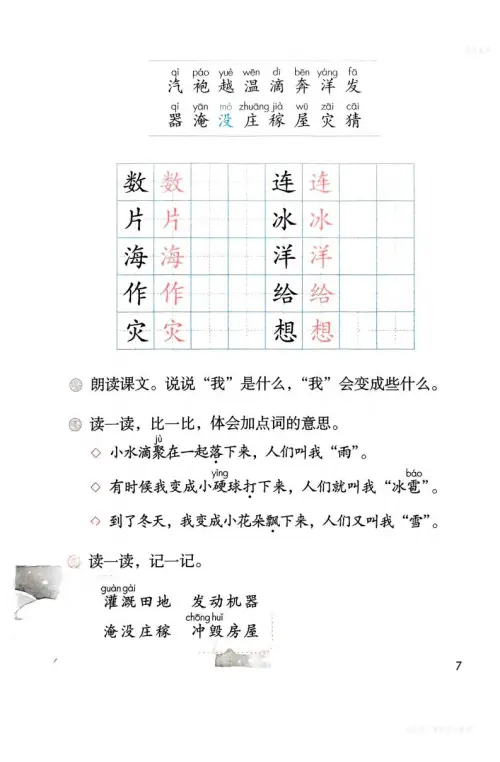 qì páo yuè wēn dī bēn yáng fā
汽 袍 越 温 滴 奔 洋 发
qì yān mò zhuāng jià wū zāi cāi
器 淹 没 庄 稼 屋 灾 猜
数 数 连 连
片 片 冰 冰
海 海 洋 洋
作 作 给 给
灾 灾 想 想
朗读课文。说说“我”是什么，“我”会变成些什么。
读一读，比一比，体会加点词的意思。
jù
◇ 小水滴聚在一起落下来，人们叫我“雨”。
yìng báo
◇ 有时候我变成小硬球打下来，人们就叫我“冰雹”。
◇ 到了冬天，我变成小花朵飘下来，人们又叫我“雪”。
读一读，记一记。
guàn gài
灌溉田地 发动机器
chōng huǐ
淹没庄稼 冲毁房屋
7